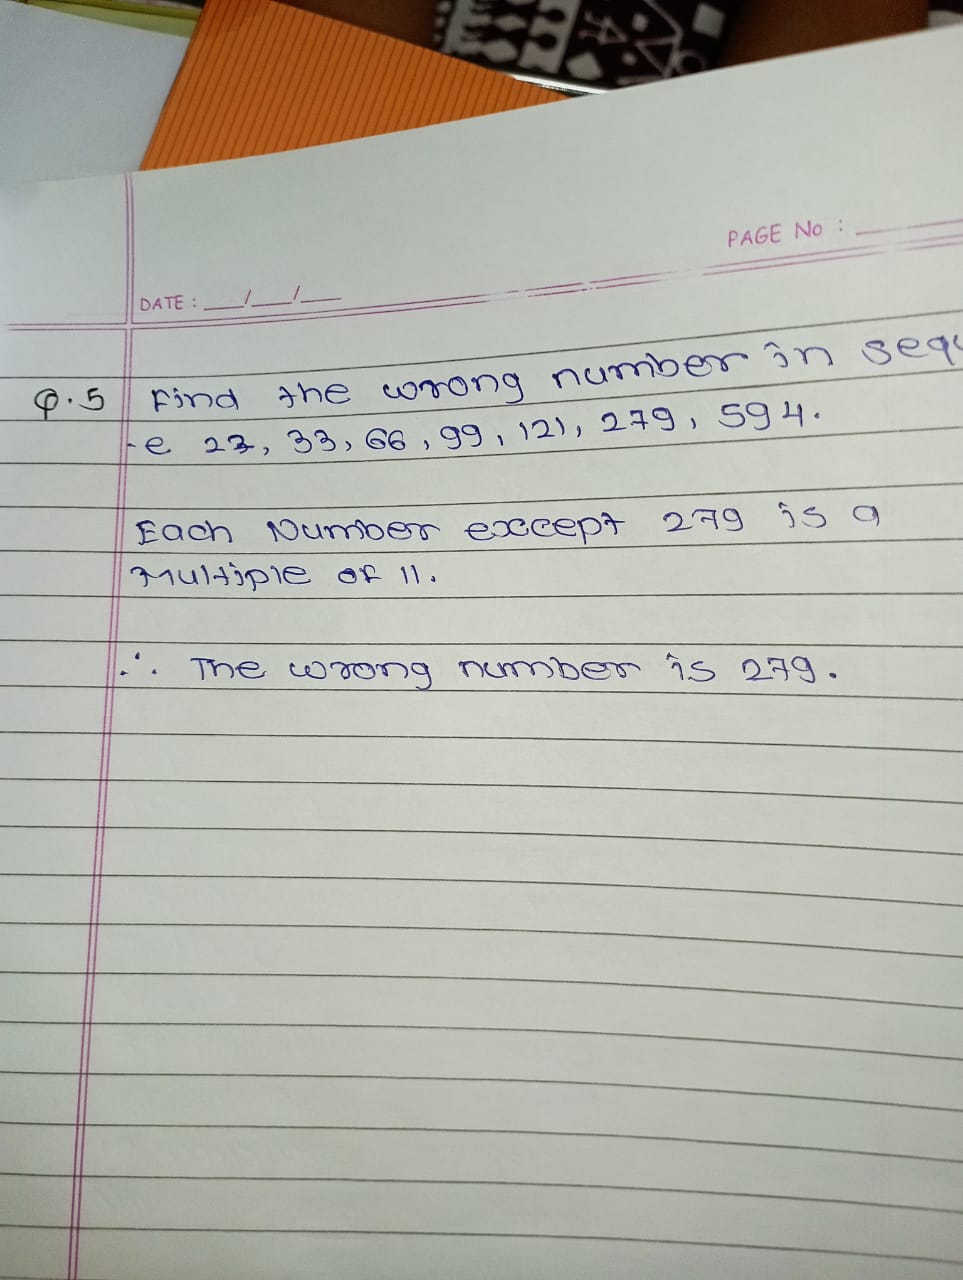 PAGE No :
DATE : __/__/__
Q.5 Find the wrong number in sequ
-e 22, 33, 66, 99, 121, 279, 594.
Each Number except 279 is a
Multiple of 11.
∴ The wrong number is 279.